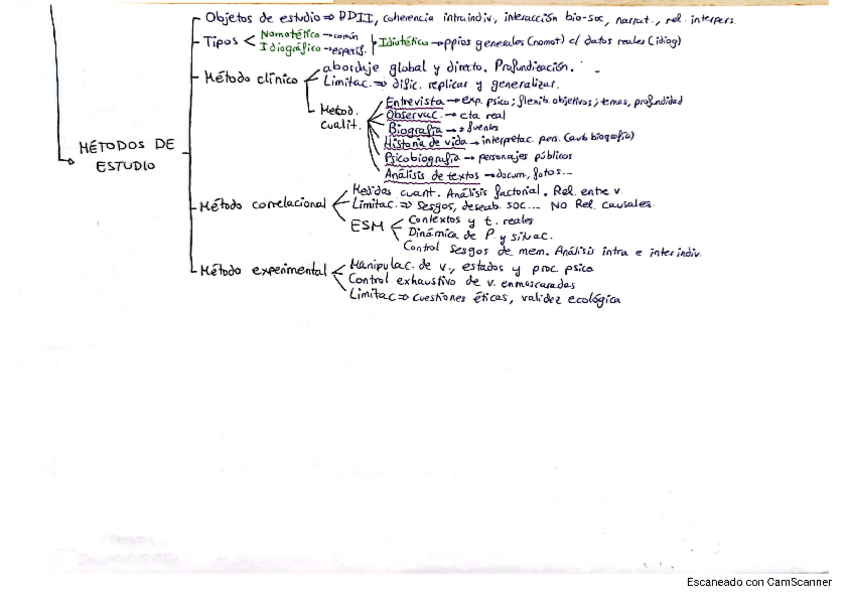 Objetos de estudio ⇒ DDII, coherencia intraindiv, interacción bio-soc, narrat., rel. interpers.
Tipos < Nomotético → común
Idiográfico → específ.
Idiotético → ppios generales (nomot) c/ datos reales (idiog)
Método clínico < abordaje global y directo. Profundización.
Limitac. ⇒ dific. replicar y generalizar.
Metod. cualit.
Entrevista → exp. psico; flexib. objetivos; temas, profundidad
Observac. → cta real
Biografía → + fuentes
Historia de vida → interpretac. pers. (autobiografía)
Psicobiografía → personajes públicos
Análisis de textos → docum, fotos...
MÉTODOS DE
ESTUDIO
Método correlacional < Medidas cuant. Análisis factorial. Rel. entre v
Limitac. ⇒ Sesgos, deseab. soc... NO Rel. causales.
ESM < Contextos y t. reales
Dinámica de P y situac.
Control sesgos de mem. Análisis intra e interindiv.
Método experimental < Manipulac. de v., estados y proc. psico
Control exhaustivo de v. enmascaradas
Limitac ⇒ cuestiones éticas, validez ecológica
Escaneado con CamScanner